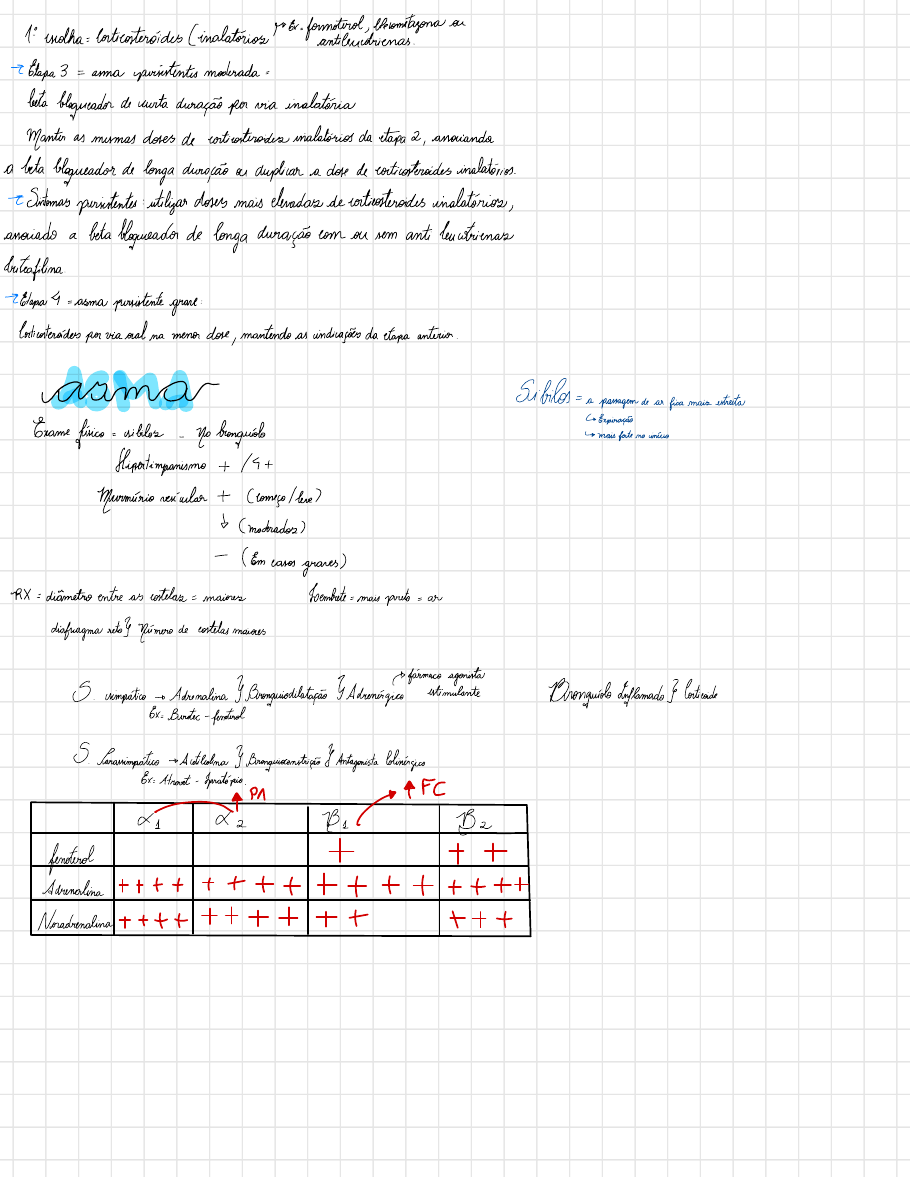 1º escolha = Corticosteróides (inalatórios → Ex. formoterol, ou
antileucotrienas.
→ Etapa 3 = asma persistentes moderada =
beta bloqueador de curta duração por via inalatória
Manter as mesmas doses de corticosteroides inalatórios da etapa 2, associando
a beta bloqueador de longa duração ou duplicar a dose de corticosteroides inalatórios.
→ Sintomas persistentes: utilizar doses mais elevadas de corticosteroides inalatórios,
associado a beta bloqueador de longa duração com ou sem anti leucotrienas
→ Etapa 4 = asma persistente grave:
Corticosteroides por via oral na menor dose, mantendo as indicações da etapa anterior.
asma
Sibilos = a passagem de ar fica mais estreita
↳ Expiração
↳ mais forte no início
Exame físico = sibilos - No bronquíolo
Hipertimpanismo + /4+
Murmúrio vesicular + (começo/leve)
↓ (moderados)
— (Em casos graves)
RX = diâmetro entre as costelas = maiores
Lembrete = mais preto = ar
diafragma reto } Número de costelas maiores
S. simpático → Adrenalina } Bronquiodilatação } Adrenérgico → fármaco agonista estimulante
Ex: Berotec - fenoterol
Bronquíolo Inflamado } Corticoide
S. Parassimpático → Acetilcolina } Bronquioconstrição } Antagonista Colinérgico
Ex: Atrovent - Ipratópio.
↑ PA ↑ FC
α1 α2 β1 β2
fenoterol + + +
Adrenalina + + + + + + + + + + + + + + + +
Noradrenalina + + + + + + + + + + + + +